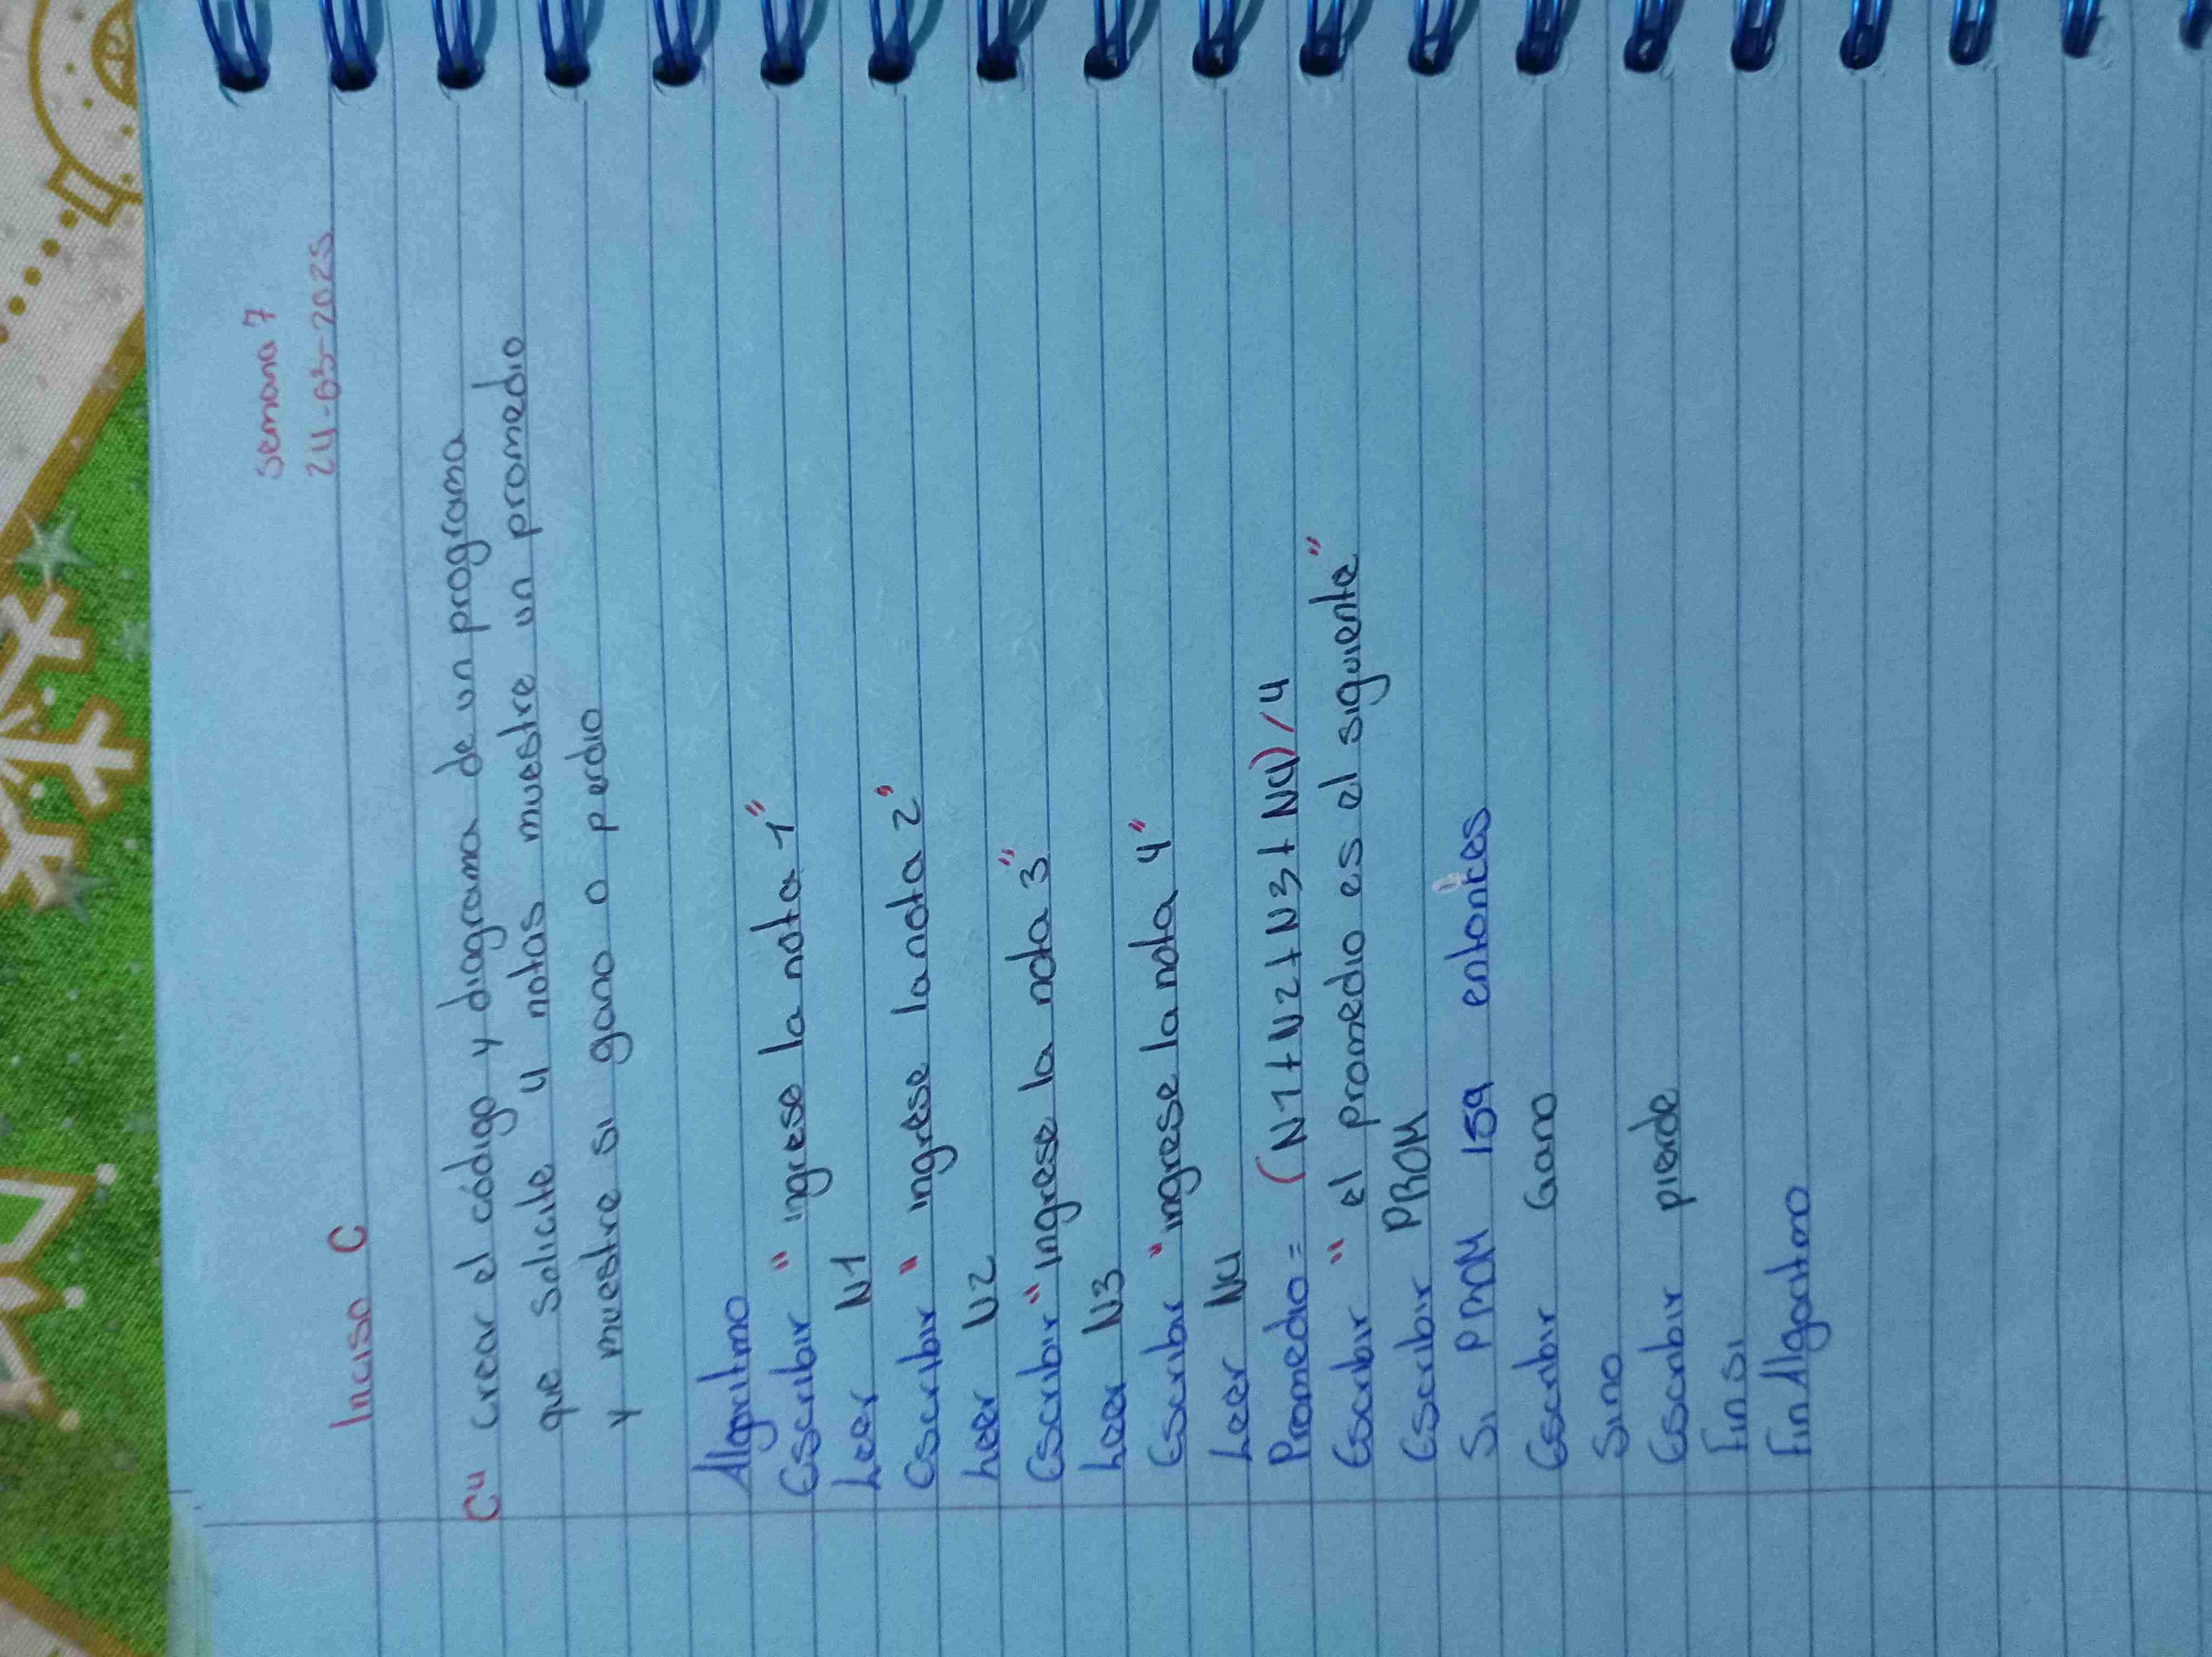 Semana 7
24-03-2025
Inciso C
C4 Crear el código y diagrama de un programa
que solicite 4 notas muestre un promedio
y muestre si gano o perdio
Algoritmo
Escribir "ingrese la nota 1"
Leer N1
Escribir "ingrese la nota 2"
Leer N2
Escribir "ingrese la nota 3"
Leer N3
Escribir "ingrese la nota 4"
Leer N4
Promedio = (N1+N2+N3+N4)/4
Escribir "el promedio es el siguiente"
Escribir PROM
Si PROM 159 entonces
Escribir Gano
Sino
Escribir pierde
Finsi
FinAlgoritmo